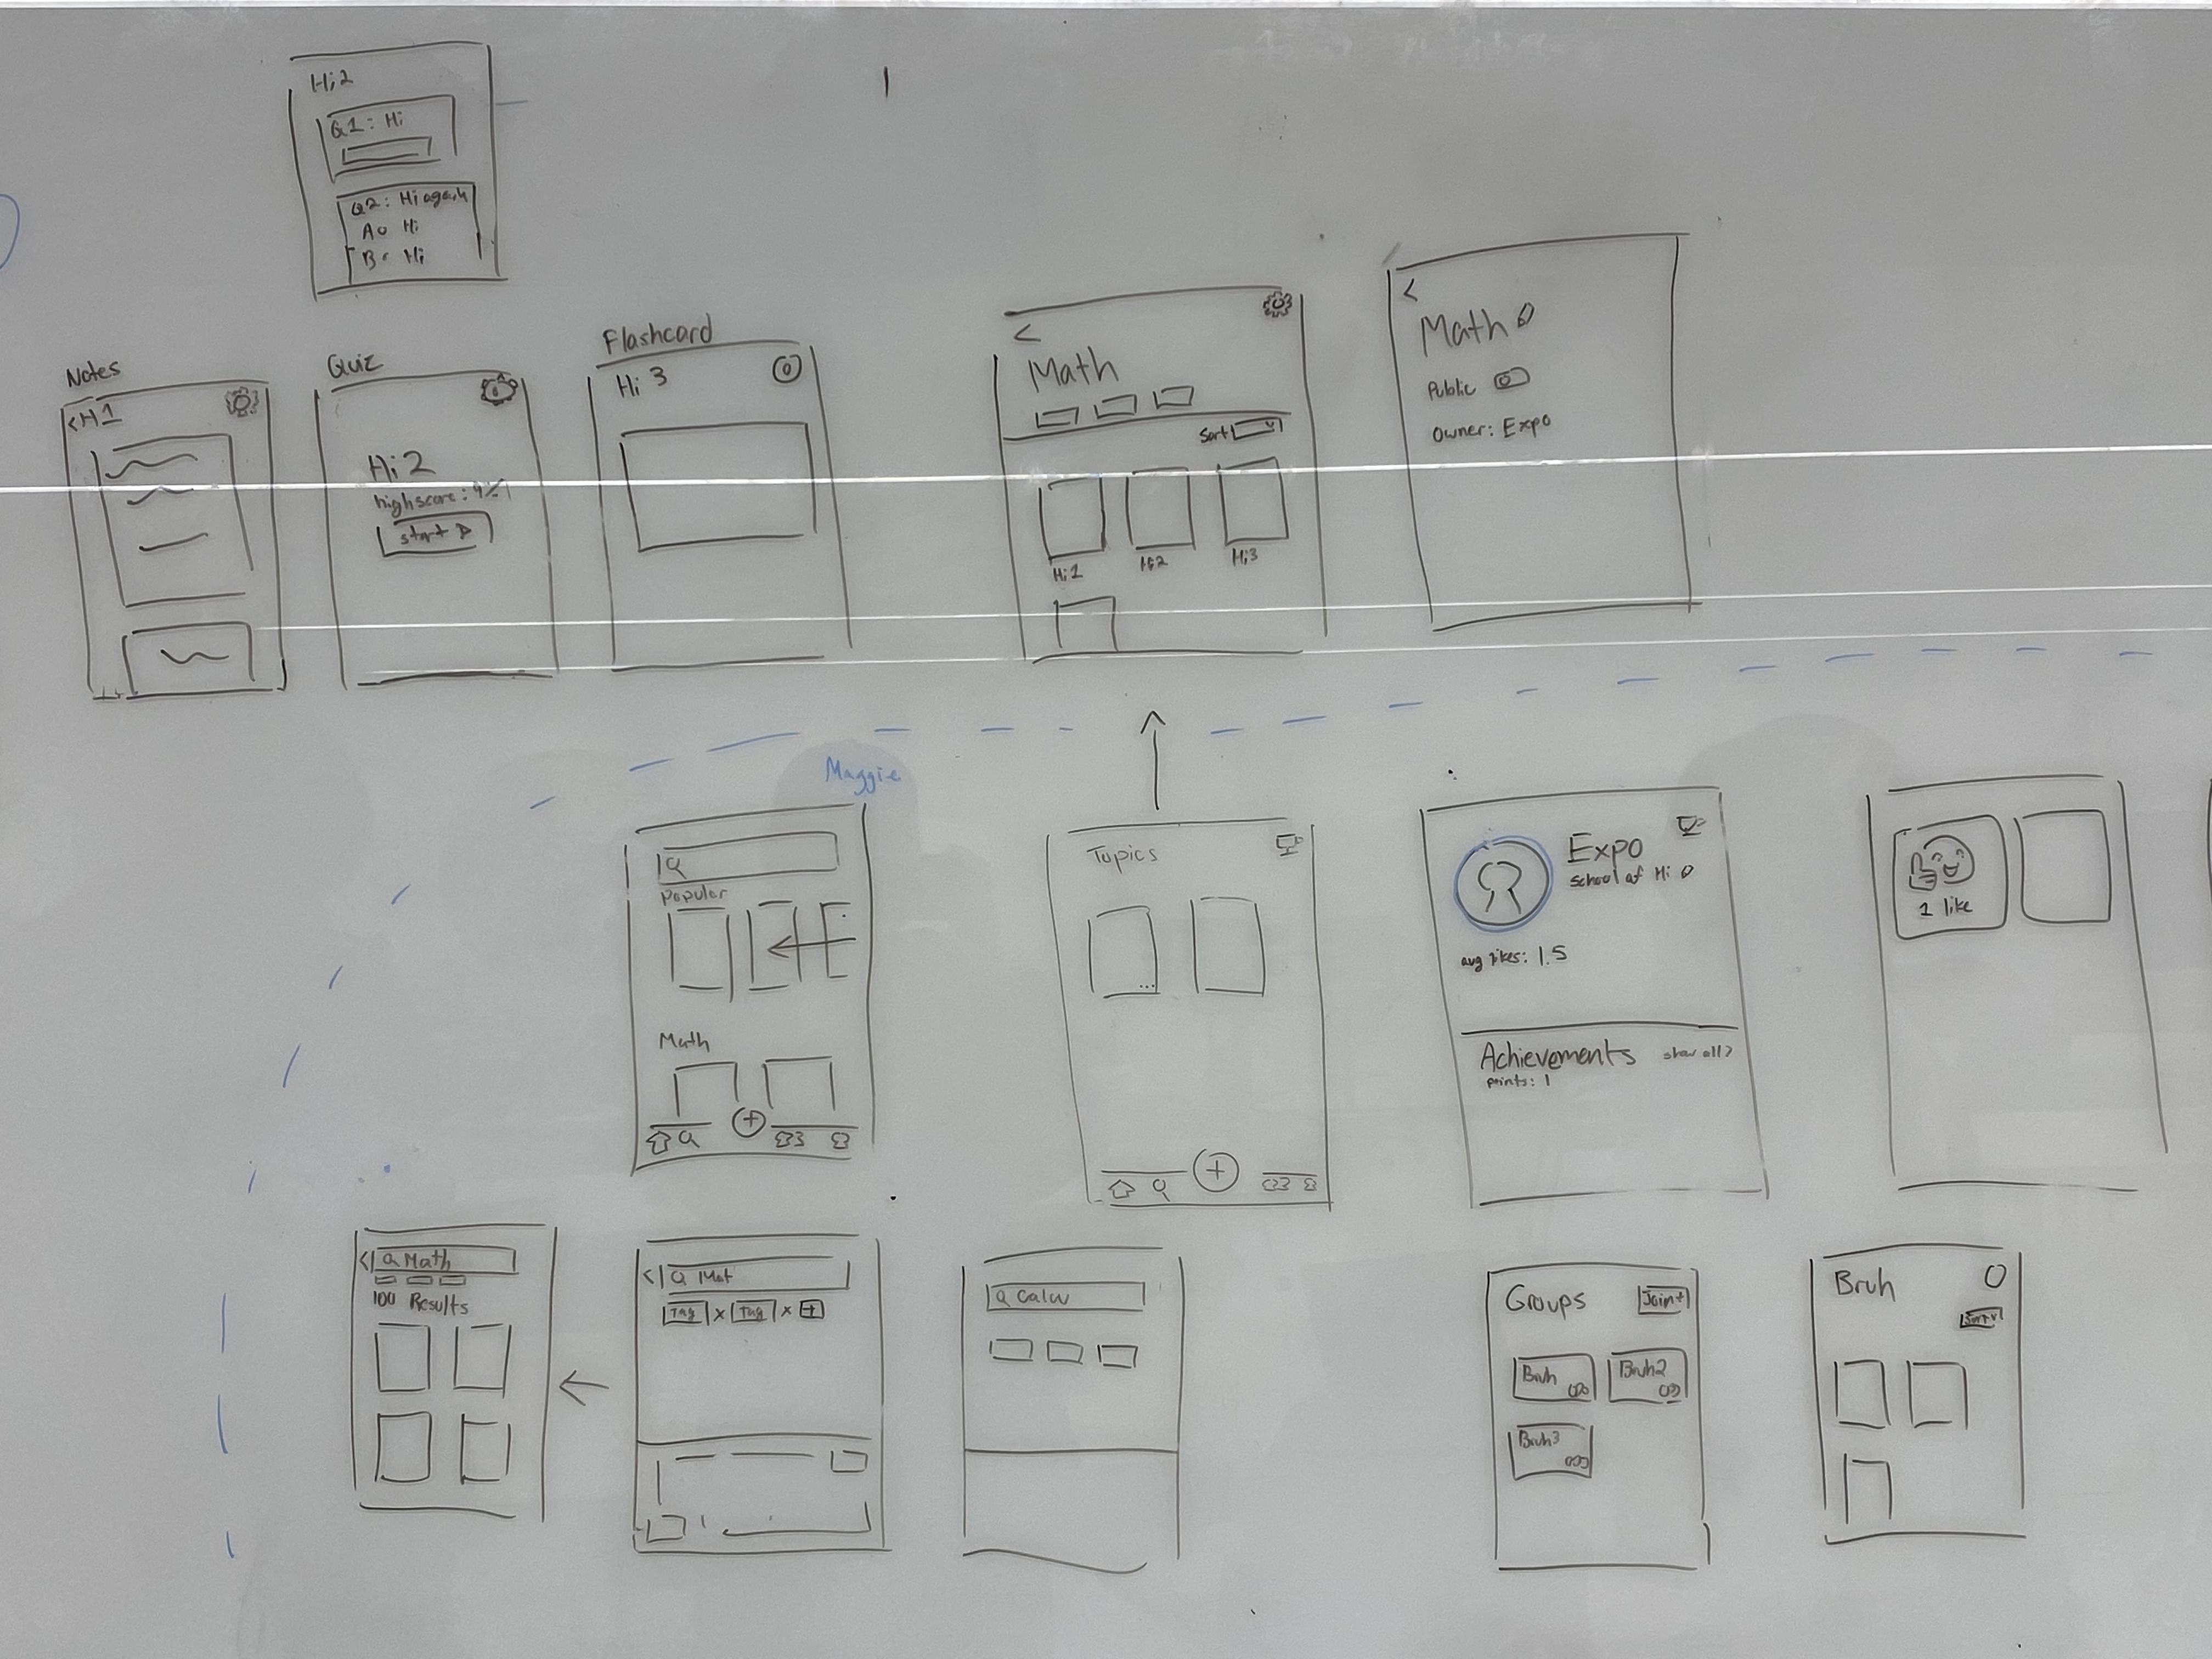 Hi2
Q1: Hi
Q2: Hi again
A Hi
B Hi
Notes
<Hi1
Quiz
Hi2
highscore:
start
Flashcard
Hi 3
<
Math
Sort
Hi1
Hi2
Hi3
<
Math
Public
Owner: Expo
Maggie
Popular
Math
Topics
...
Expo
school of Hi
avg likes: 1.5
Achievements
show all>
points: 1
1 like
< Math
100 Results
< Mat
Tag x Tag x +
Calcu
Groups
Join+
Bruh
Bruh2
Bruh3
Bruh
Sort